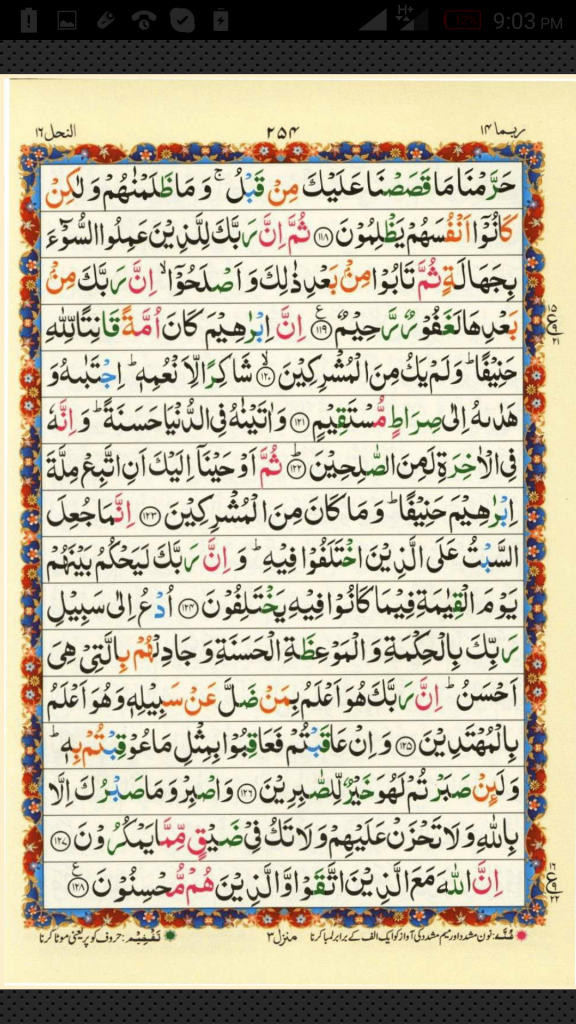 12%
9:03 PM
النحل ١٦
٢٥٤
ربما ١٤
حَرَّمْنَا مَا قَصَصْنَا عَلَيْكَ مِنْ قَبْلُ ۚ وَمَا ظَلَمْنٰهُمْ وَلٰكِنْ
كَانُوْۤا اَنْفُسَهُمْ يَظْلِمُوْنَ ﴿۱۱۸﴾ ثُمَّ اِنَّ رَبَّكَ لِلَّذِيْنَ عَمِلُوا السُّوْٓءَ
بِجَهَالَةٍ ثُمَّ تَابُوْا مِنْۢ بَعْدِ ذٰلِكَ وَاَصْلَحُوْۤا ۙ اِنَّ رَبَّكَ مِنْۢ
بَعْدِهَا لَغَفُوْرٌ رَّحِيْمٌ ﴿۱۱۹﴾ ع اِنَّ اِبْرٰهِيْمَ كَانَ اُمَّةً قَانِتًا لِّلّٰهِ
حَنِيْفًا ؕ وَلَمْ يَكُ مِنَ الْمُشْرِكِيْنَ ۙ﴿۱۲۰﴾ شَاكِرًا لِّاَنْعُمِهٖ ؕ اِجْتَبٰىهُ وَ
هَدٰىهُ اِلٰى صِرَاطٍ مُّسْتَقِيْمٍ ﴿۱۲۱﴾ وَاٰتَيْنٰهُ فِى الدُّنْيَا حَسَنَةً ؕ وَاِنَّهٗ
فِى الْاٰخِرَةِ لَمِنَ الصّٰلِحِيْنَ ؕ﴿۱۲۲﴾ ثُمَّ اَوْحَيْنَاۤ اِلَيْكَ اَنِ اتَّبِعْ مِلَّةَ
اِبْرٰهِيْمَ حَنِيْفًا ؕ وَمَا كَانَ مِنَ الْمُشْرِكِيْنَ ﴿۱۲۳﴾ اِنَّمَا جُعِلَ
السَّبْتُ عَلَى الَّذِيْنَ اخْتَلَفُوْا فِيْهِ ؕ وَاِنَّ رَبَّكَ لَيَحْكُمُ بَيْنَهُمْ
يَوْمَ الْقِيٰمَةِ فِيْمَا كَانُوْا فِيْهِ يَخْتَلِفُوْنَ ﴿۱۲۴﴾ اُدْعُ اِلٰى سَبِيْلِ
رَبِّكَ بِالْحِكْمَةِ وَالْمَوْعِظَةِ الْحَسَنَةِ وَجَادِلْهُمْ بِالَّتِيْ هِىَ
اَحْسَنُ ؕ اِنَّ رَبَّكَ هُوَ اَعْلَمُ بِمَنْ ضَلَّ عَنْ سَبِيْلِهٖ وَهُوَ اَعْلَمُ
بِالْمُهْتَدِيْنَ ﴿۱۲۵﴾ وَاِنْ عَاقَبْتُمْ فَعَاقِبُوْا بِمِثْلِ مَا عُوْقِبْتُمْ بِهٖ ؕ
وَلَئِنْ صَبَرْتُمْ لَهُوَ خَيْرٌ لِّلصّٰبِرِيْنَ ﴿۱۲۶﴾ وَاصْبِرْ وَمَا صَبْرُكَ اِلَّا
بِاللّٰهِ وَلَا تَحْزَنْ عَلَيْهِمْ وَلَا تَكُ فِيْ ضَيْقٍ مِّمَّا يَمْكُرُوْنَ ﴿۱۲۷﴾
اِنَّ اللّٰهَ مَعَ الَّذِيْنَ اتَّقَوْا وَّالَّذِيْنَ هُمْ مُّحْسِنُوْنَ ﴿۱۲۸﴾ ع
١٥
ع ٩
٢١
١٦
ع ٩
٢٢
غنّہ: نون مشدد اور میم مشدد کی آواز کو ایک الف کے برابر لمبا کرنا
منزل ٣
تفخیم: حروف کو پُر یعنی موٹا کرنا